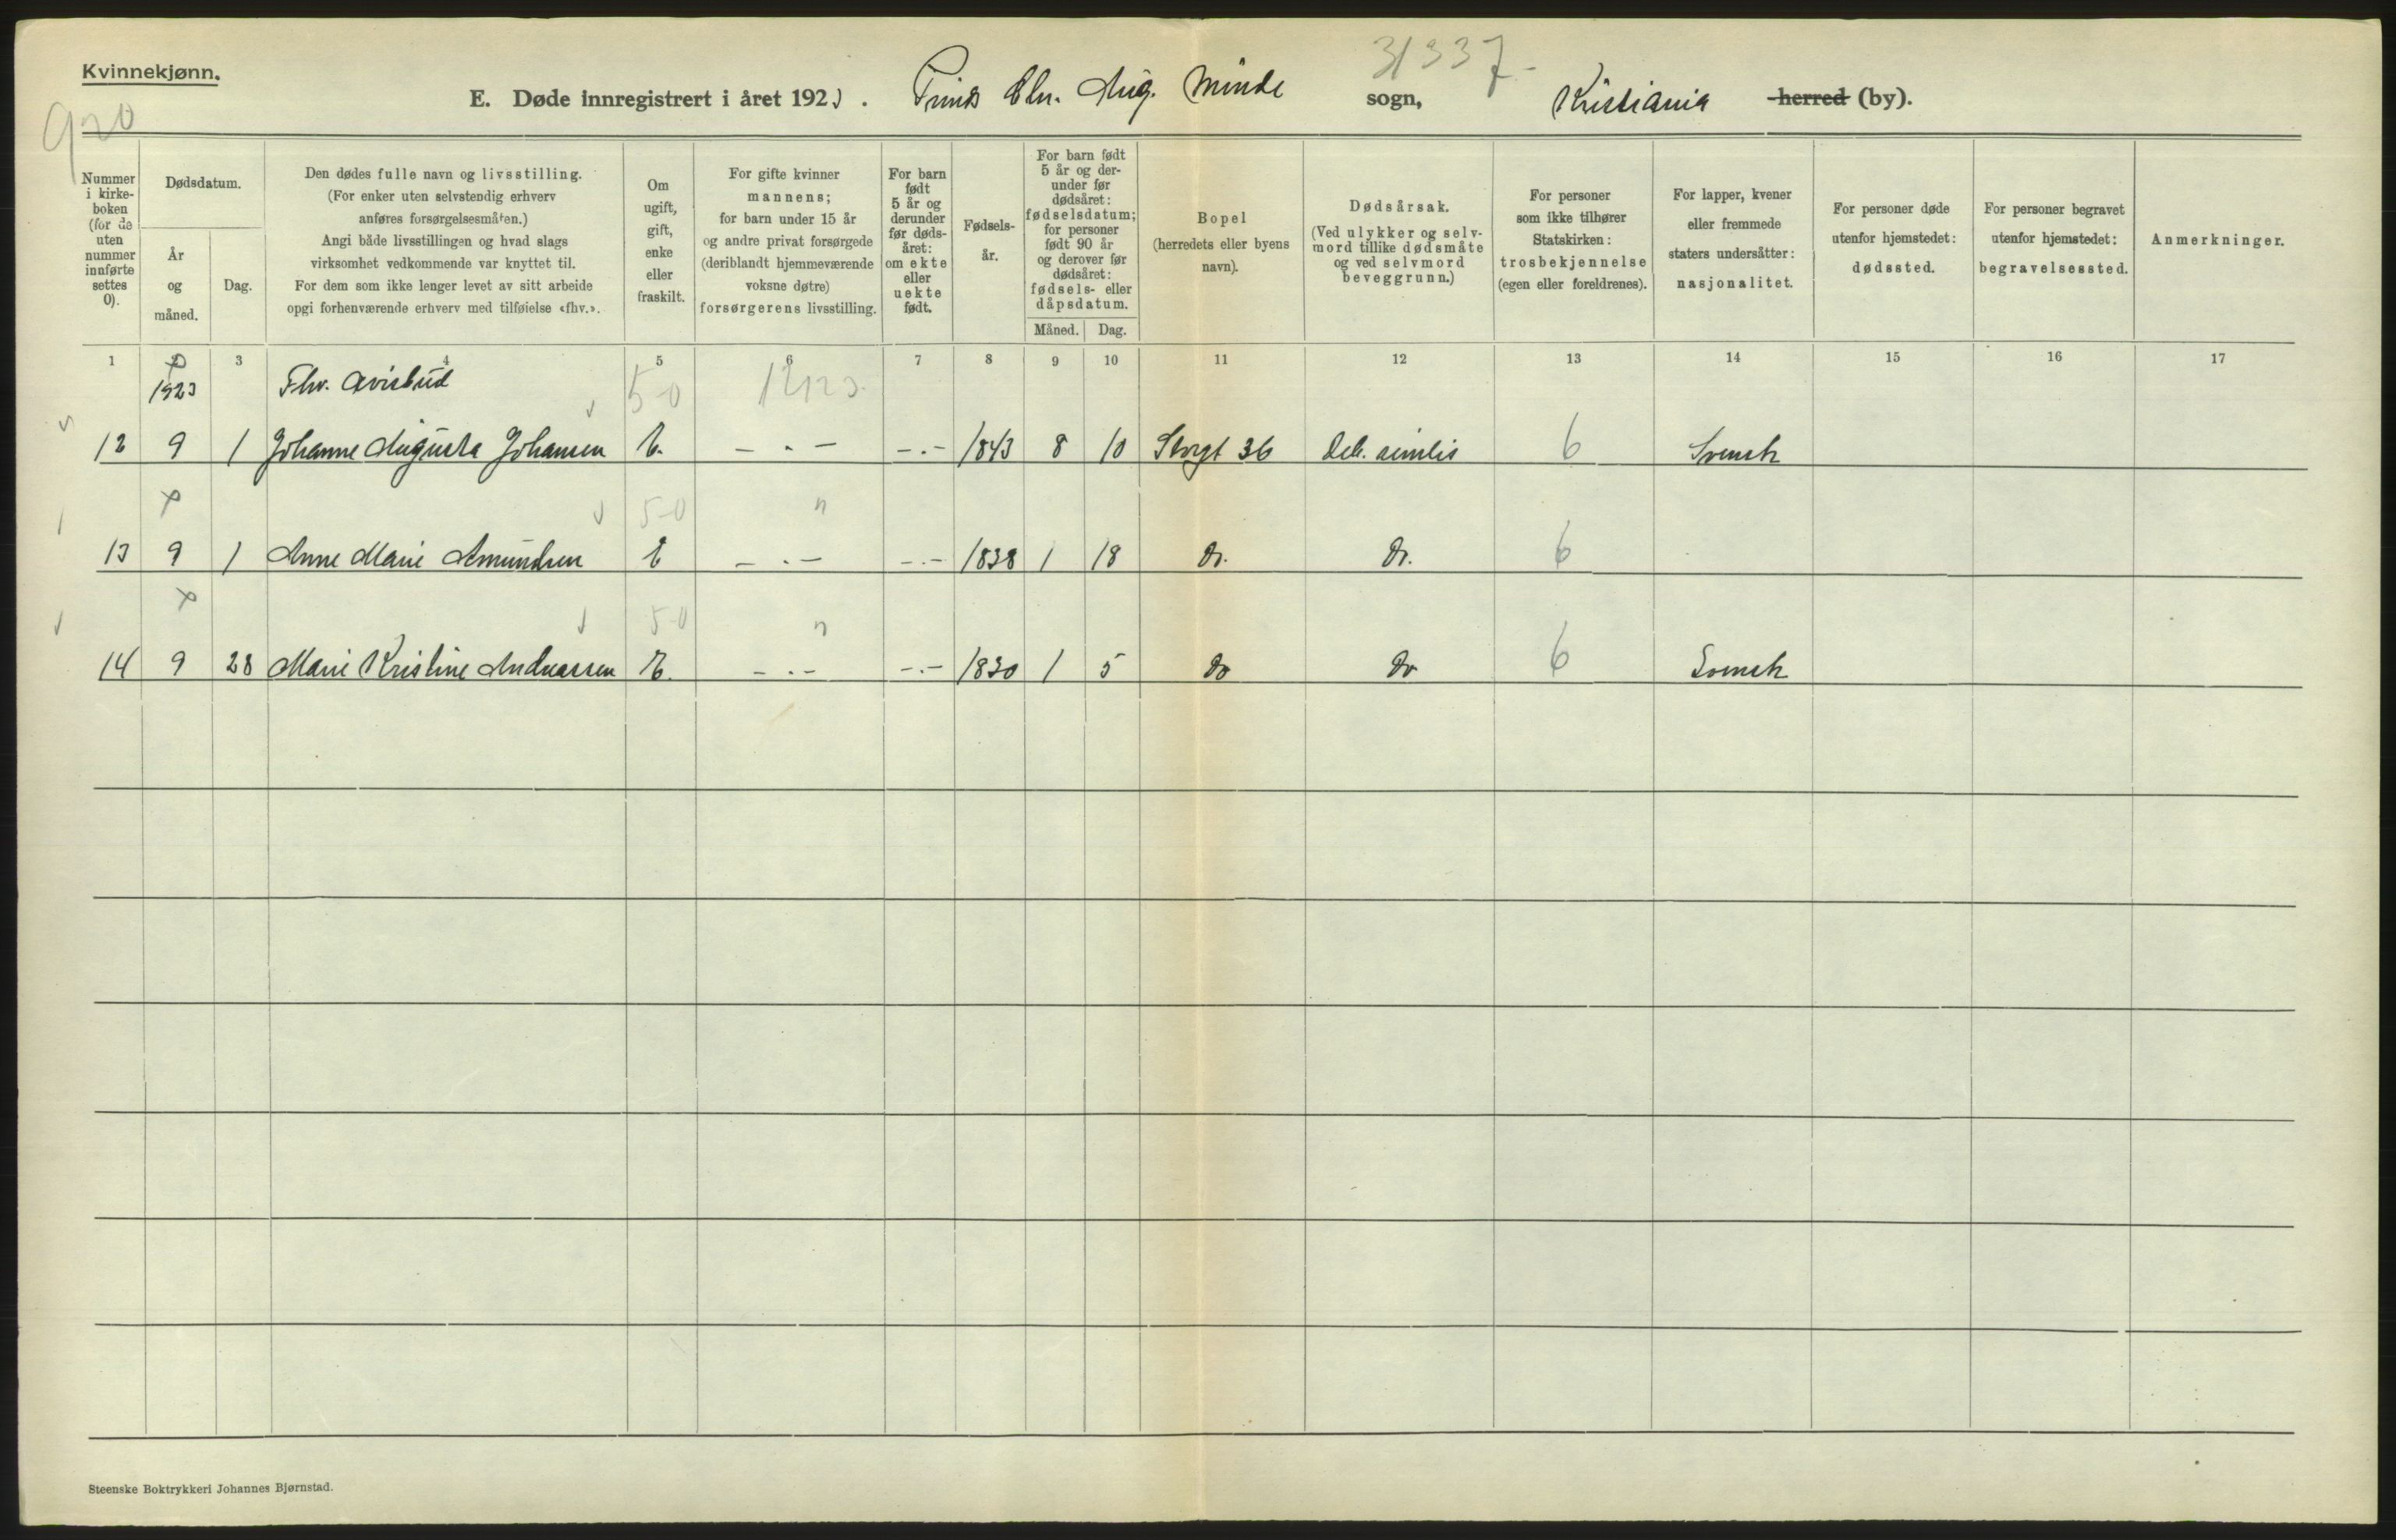 Kvinnekjønn.
31337-
E. Døde innregistrert i året 1923. Prinds Chr. Aug. Minde sogn, Kristiania herred (by).
920
Nummer i kirke-boken (for de uten nummer innførte settes 0).
Dødsdatum.
År og måned.
Dag.
Den dødes fulle navn og livsstilling.
(For enker uten selvstendig erhverv
anføres forsørgelsesmåten.)
Angi både livsstillingen og hvad slags
virksomhet vedkommende var knyttet til.
For dem som ikke lenger levet av sitt arbeide
opgi forhenværende erhverv med tilføielse «fhv.».
Om ugift, gift, enke eller fraskilt.
For gifte kvinner
mannens;
for barn under 15 år
og andre privat forsørgede
(deriblandt hjemmeværende
voksne døtre)
forsørgerens livsstilling.
For barn født 5 år og derunder før døds-året: om ekte eller uekte født.
Fødsels-år.
For barn født
5 år og der-
under før
dødsåret:
fødselsdatum;
for personer
født 90 år
og derover før
dødsåret:
fødsels- eller
dåpsdatum.
Måned. Dag.
Bopel
(herredets eller byens
navn).
Dødsårsak.
(Ved ulykker og selv-
mord tillike dødsmåte
og ved selvmord
beveggrunn.)
For personer
som ikke tilhører
Statskirken:
trosbekjennelse
(egen eller foreldrenes).
For lapper, kvener
eller fremmede
staters undersåtter:
nasjonalitet.
For personer døde
utenfor hjemstedet:
dødssted.
For personer begravet
utenfor hjemstedet:
begravelsessted.
Anmerkninger.
1 2 3 4 5 6 7 8 9 10 11 12 13 14 15 16 17
1923 Fhv. avisbud 50
12 9 1 Johanne Augusta Johansen E. — . — — . — 1843 8 10 Storgt 36 Deb. senilis 6 Svensk
50 "
13 9 1 Anne Marie Amundsen E — . — — . — 1838 1 18 Do. Do. 6
50 "
14 9 28 Marie Kristine Andreassen E. — . — — . — 1830 1 5 Do Do 6 Svensk
Steenske Boktrykkeri Johannes Bjørnstad.